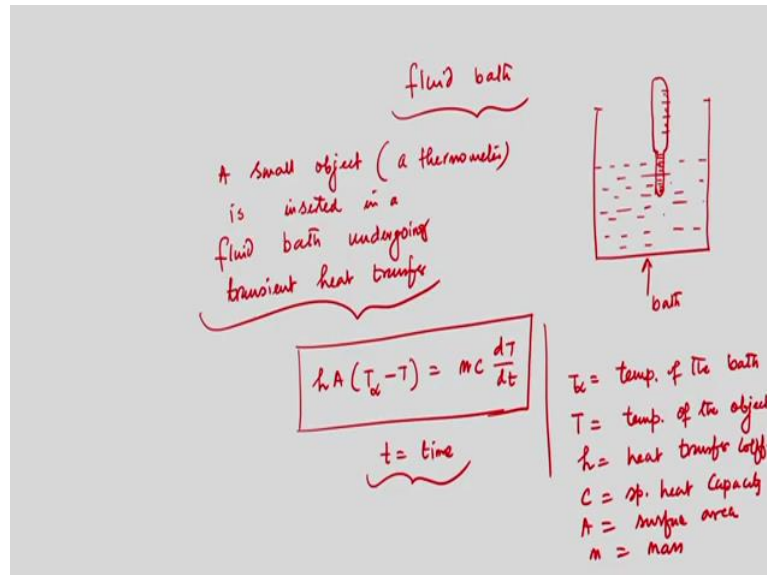 fluid bath
A small object (a thermometer)
is inserted in a
fluid bath undergoing
transient heat transfer
bath
hA(T_α - T) = mC dT/dt
t = time
T_α = temp. of the bath
T = temp. of the object
h = heat transfer coeff
C = sp. heat capacity
A = surface area
m = mass